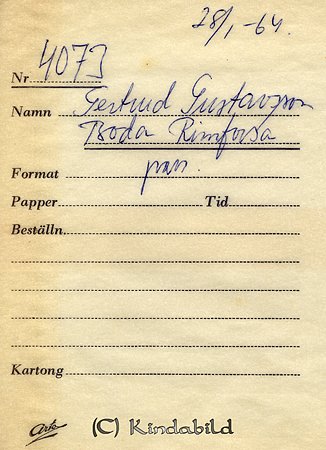 28/1 -64.
Nr 4073
Namn Gertrud Gustavsson
Boda Rimforsa
Format pass.
Papper Tid
Beställn.
Kartong
Arte
(C) Kindabild